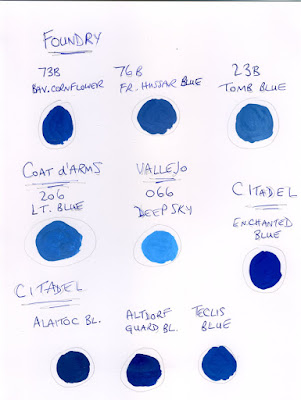 FOUNDRY
73B 76B 23B
BAV. CORNFLOWER FR. HUSSAR BLUE TOMB BLUE
COAT d'ARMS VALLEJO
206 066 CITADEL
LT. BLUE DEEP SKY ENCHANTED
BLUE
CITADEL
ALAITOC BL. ALTDORF TECLIS
GUARD BL. BLUE